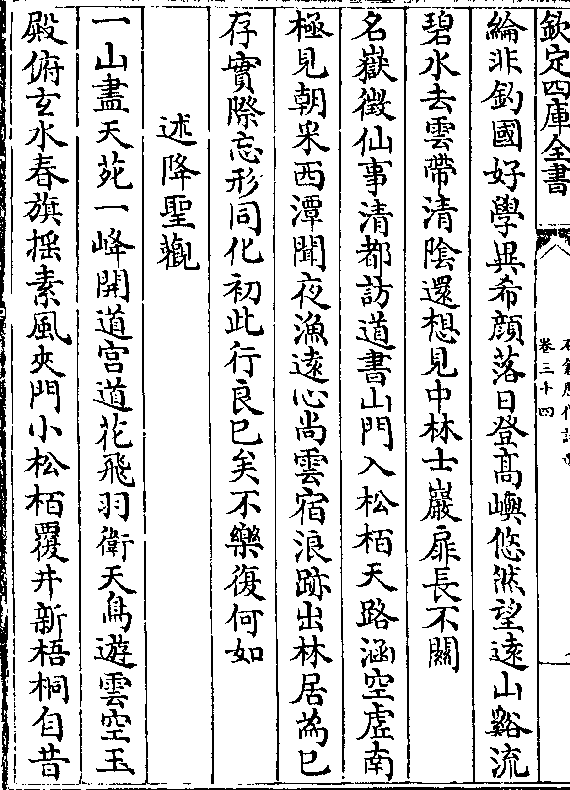 欽定四庫全書
卷三十四
綸非釣國好學異希顔落日登髙嶼悠然望遠山谿流
碧水去雲帶清陰還想見中林士巖扉長不關
名嶽徴仙事清都訪道書山門入松栢天路涵空虚南
極見朝采西潭聞夜漁遠心尚雲宿浪跡出林居為已
存實際忘形同化初此行良已矣不樂復何如
述降聖觀
一山盡天苑一峰開道宫道花飛羽衛天鳥遊雲空玉
殿俯玄水春旗摇素風夾門小松栢覆井新梧桐自昔